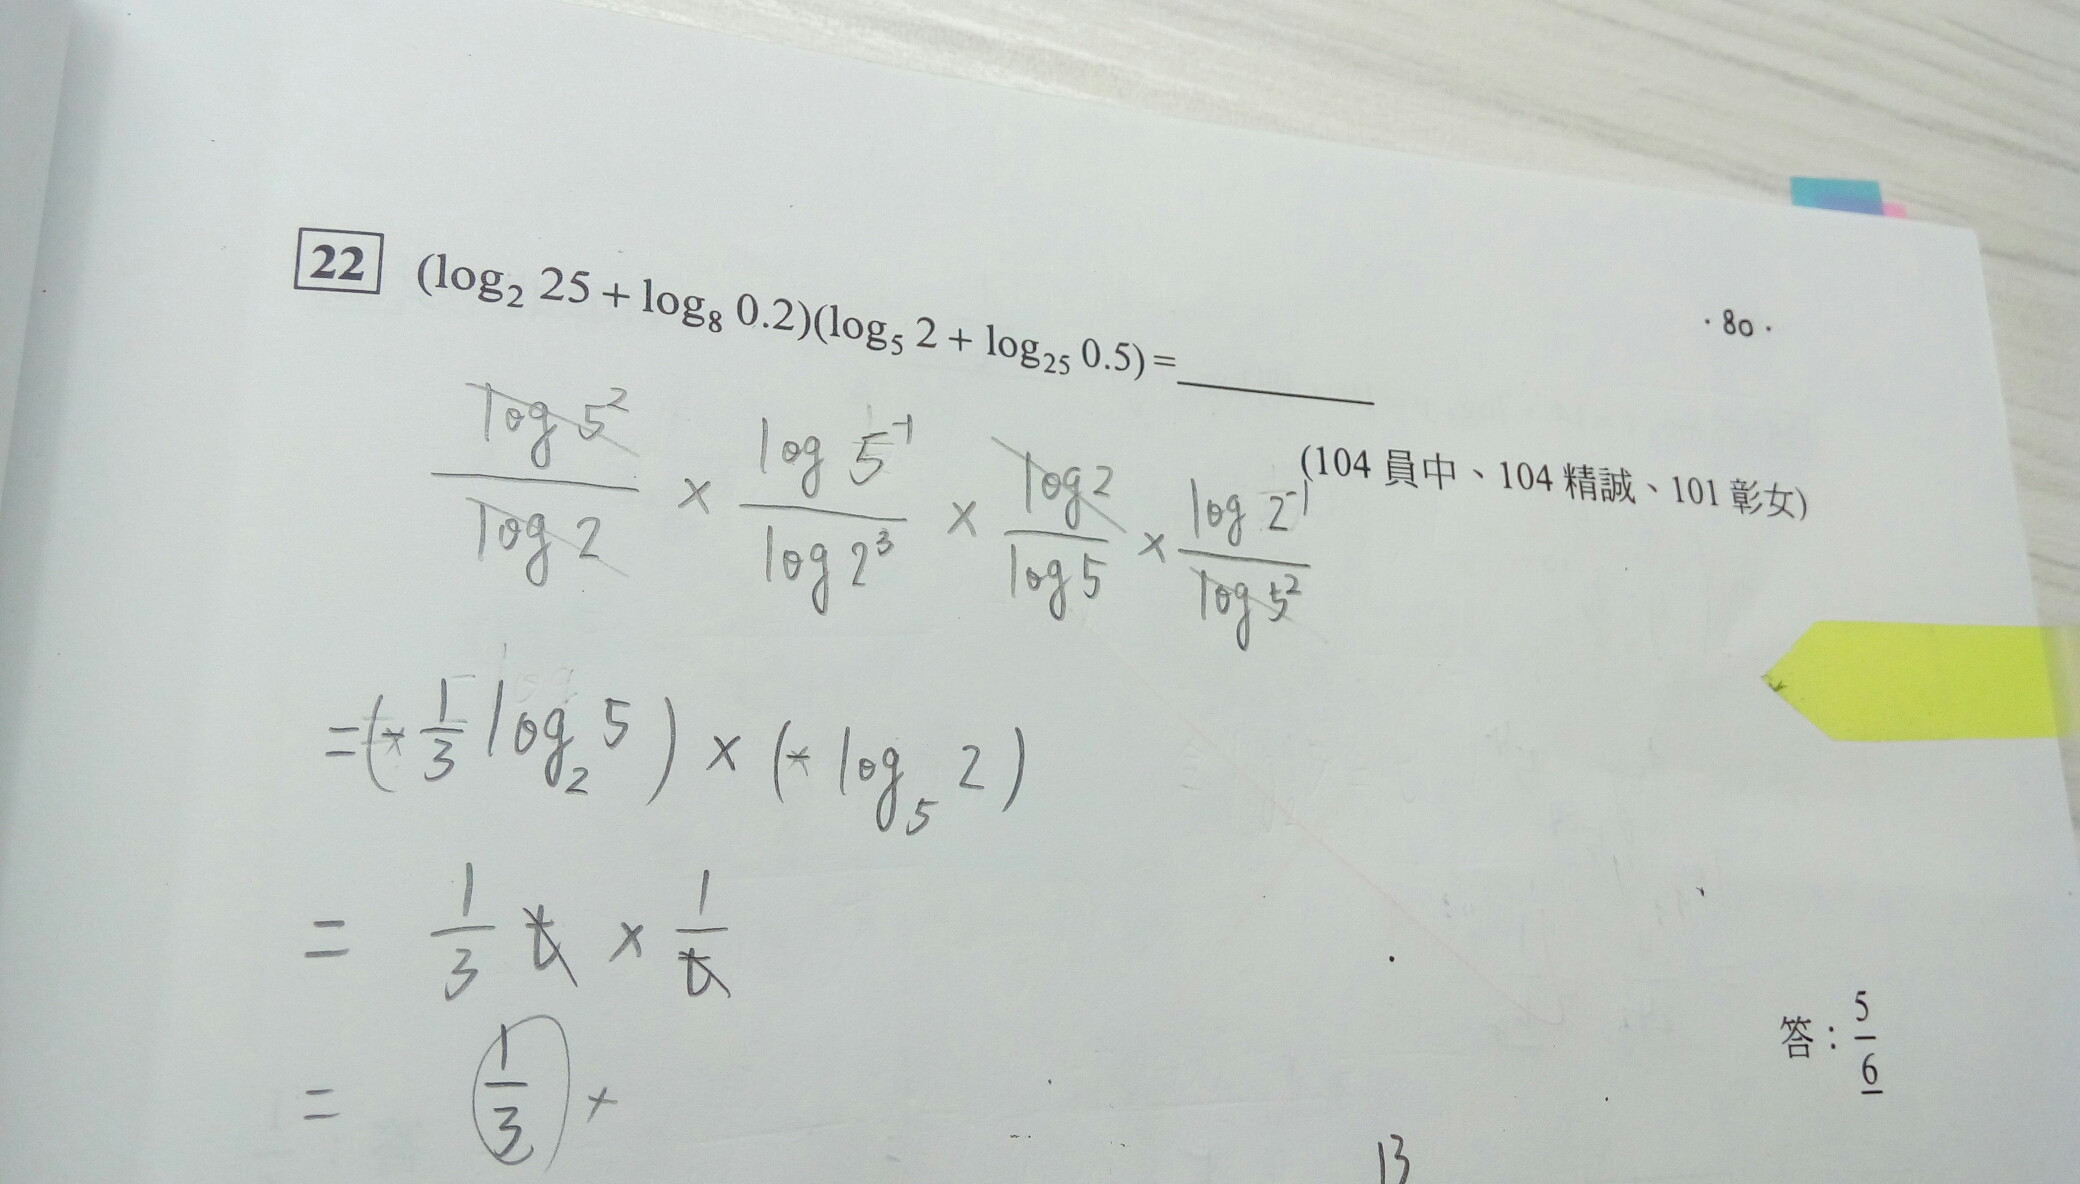 22 (log₂ 25 + log₈ 0.2)(log₅ 2 + log₂₅ 0.5) = ______
· 80 ·
(104 員中、104 精誠、101 彰女)
log 5² / log 2 × log 5⁻¹ / log 2³ × log 2 / log 5 × log 2⁻¹ / log 5²
= (* 1/3 log₂ 5) × (* log₅ 2)
= 1/3 t × 1/t
= 1/3 ×
答：5/6
13